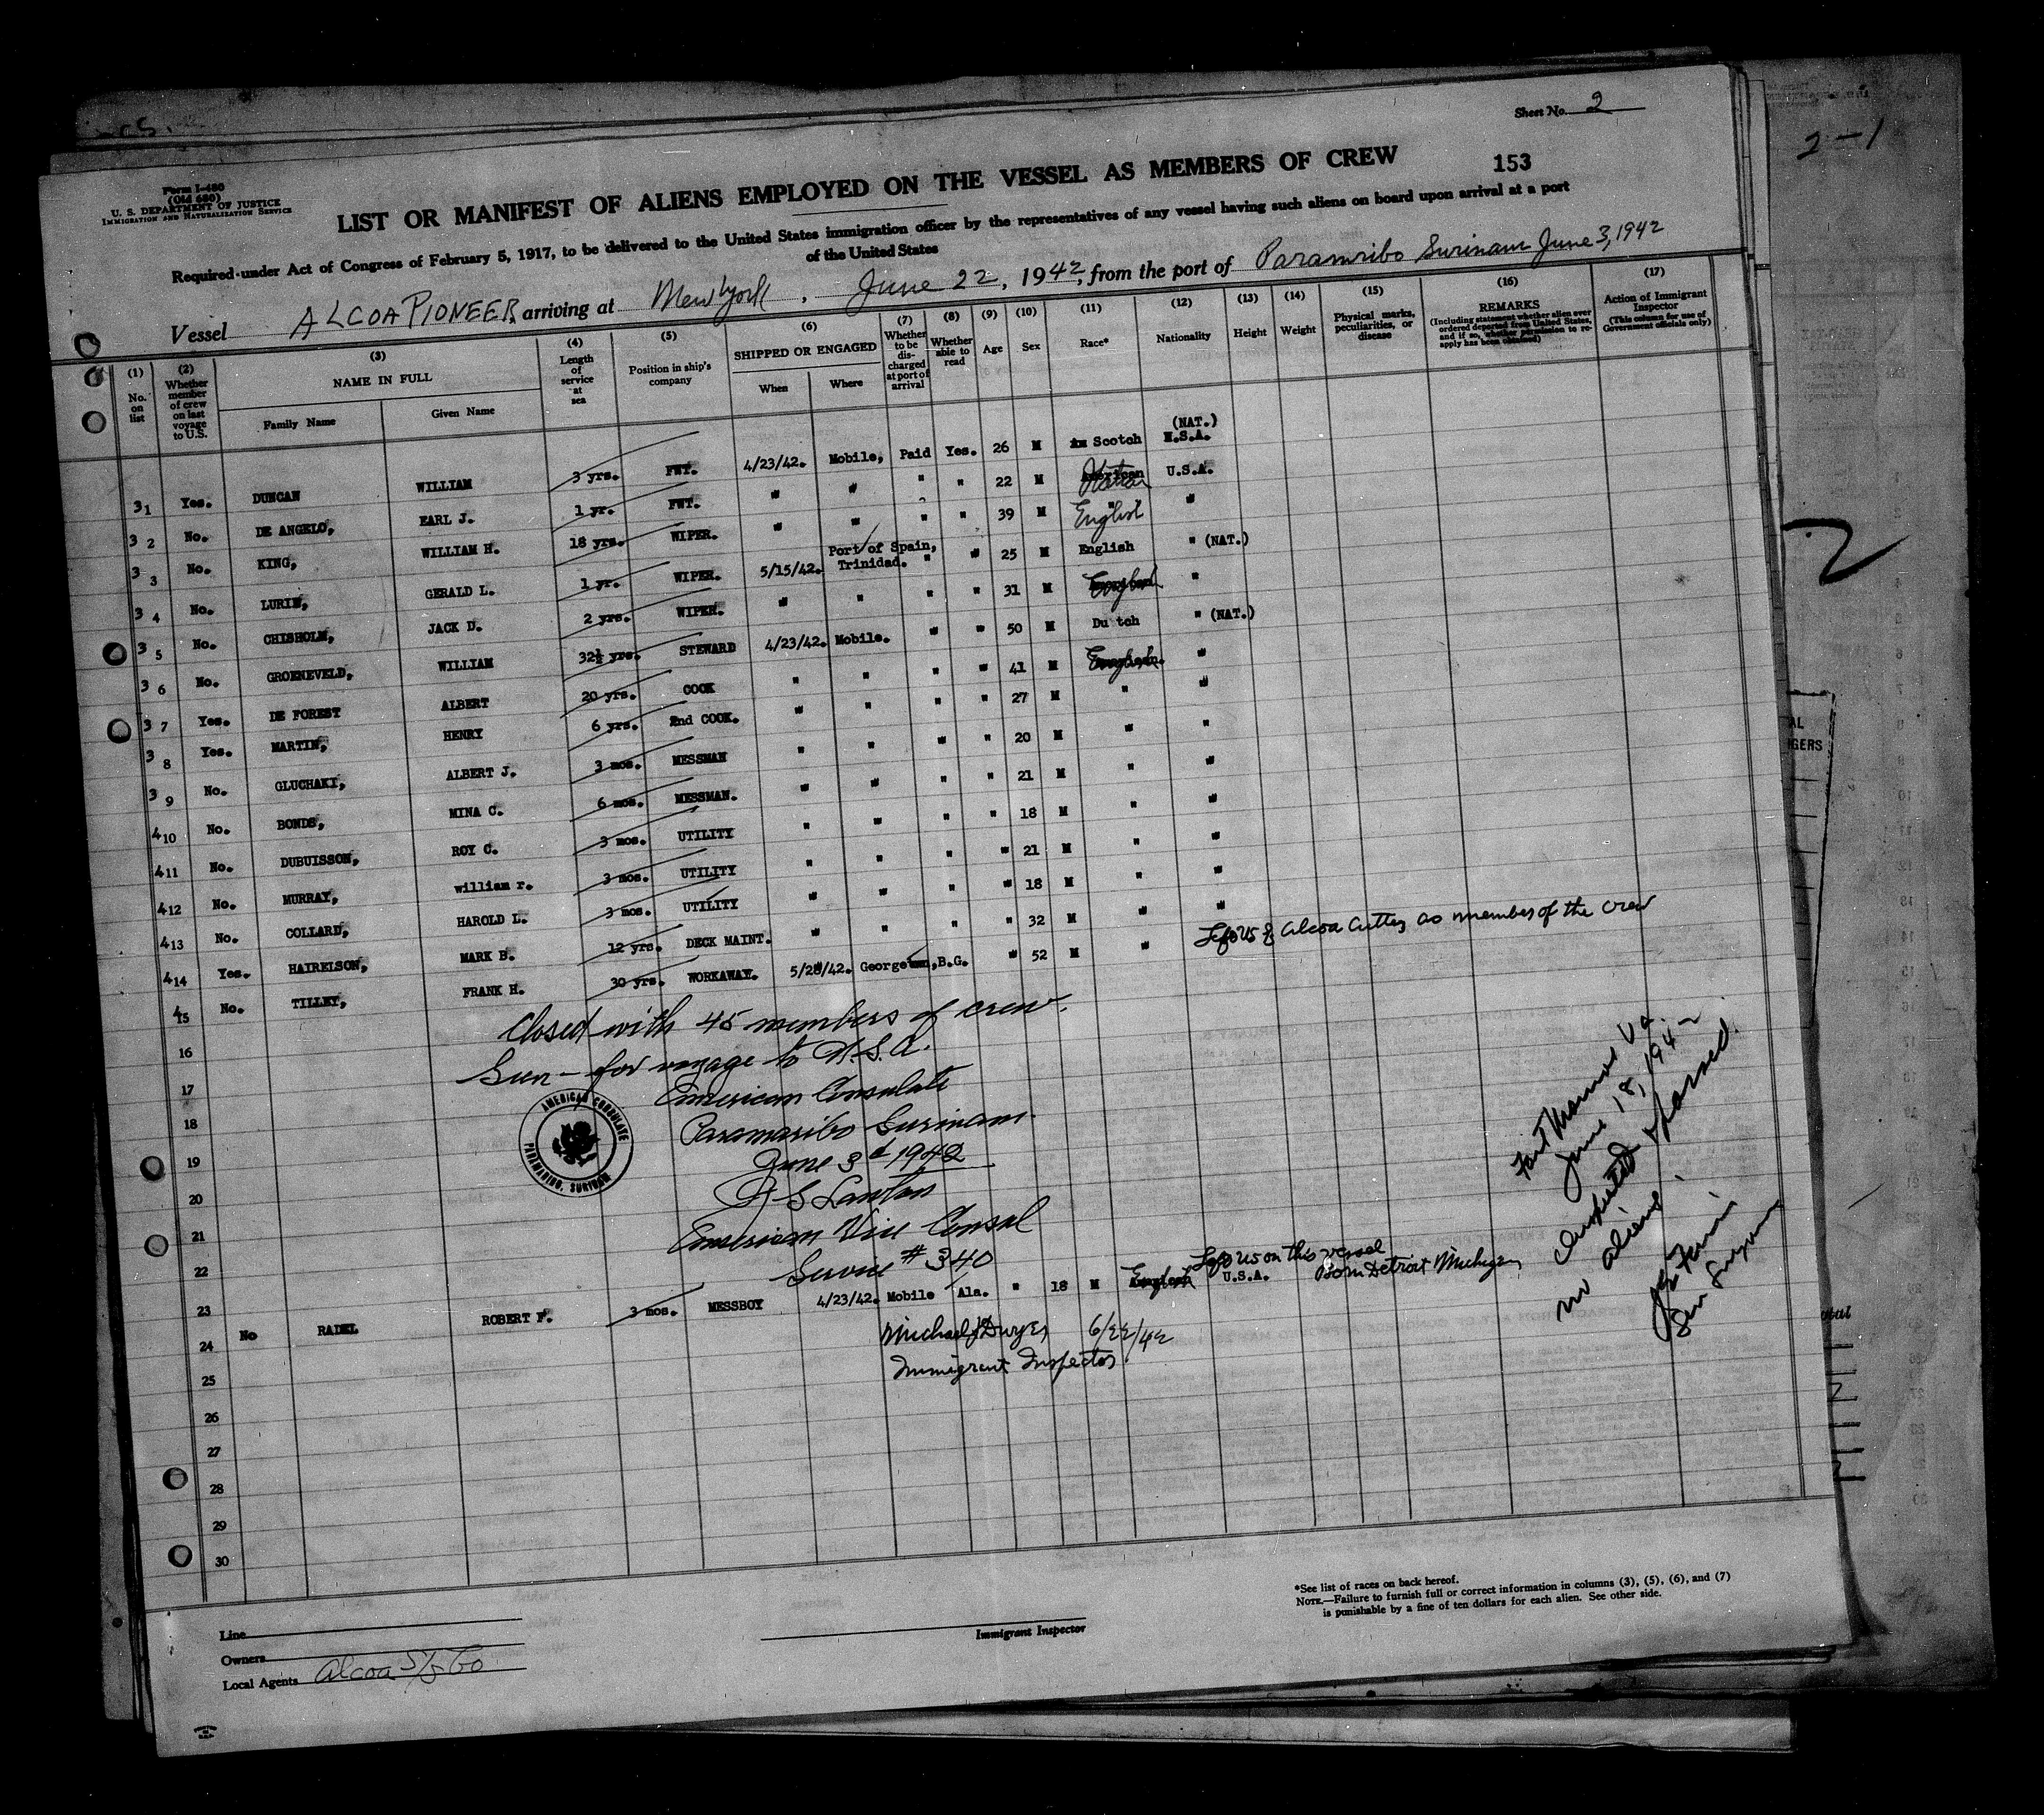 Sheet No. 2
153
2-1
Form I-480
(Old 680)
U. S. DEPARTMENT OF JUSTICE
IMMIGRATION AND NATURALIZATION SERVICE
LIST OR MANIFEST OF ALIENS EMPLOYED ON THE VESSEL AS MEMBERS OF CREW
Required under Act of Congress of February 5, 1917, to be delivered to the United States immigration officer by the representatives of any vessel having such aliens on board upon arrival at a port
of the United States
Vessel ALCOA PIONEER, arriving at New York, June 22, 1942, from the port of Paramribo Surinam June 3, 1942
(1) No. on list
(2) Whether member of crew on last voyage to U.S.
(3) NAME IN FULL
Family Name Given Name
(4) Length of service at sea
(5) Position in ship's company
(6) SHIPPED OR ENGAGED
When Where
(7) Whether to be discharged at port of arrival
(8) Whether able to read
(9) Age
(10) Sex
(11) Race*
(12) Nationality
(13) Height
(14) Weight
(15) Physical marks, peculiarities, or disease
(16) REMARKS
(Including statement whether alien ever ordered deported from United States, and if so, whether permission to reapply has been obtained)
(17) Action of Immigrant Inspector
(This column for use of Government officials only)
31 Yes. DUNCAN WILLIAM 3 yrs. FWT. 4/23/42. Mobile, Paid Yes. 26 M Scotch (NAT.) U.S.A.
32 No. DE ANGELO, EARL J. 1 yr. FWT. " " " " 22 M U.S.A.
33 No. KING, WILLIAM H. 18 yrs. WIPER. " " " " 39 M English "
34 No. LURIE, GERALD L. 1 yr. WIPER. 5/15/42. Port of Spain, Trinidad. " " 25 M English " (NAT.)
35 No. CHISHOLM, JACK D. 2 yrs. WIPER. " " " " 31 M English "
36 No. GROENEVELD, WILLIAM 32½ yrs. STEWARD 4/23/42. Mobile. " " 50 M Dutch " (NAT.)
37 Yes. DE FOREST ALBERT 20 yrs. COOK " " " " 41 M English "
38 Yes. MARTIN, HENRY 6 yrs. 2nd COOK. " " " " 27 M " "
39 No. GLUCHAKI, ALBERT J. 3 mos. MESSMAN " " " " 20 M " "
410 No. BONDS, MINA C. 6 mos. MESSMAN. " " " " 21 M " "
411 No. DUBUISSON, ROY C. 3 mos. UTILITY " " " " 18 M " "
412 No. MURRAY, william r. 3 mos. UTILITY " " " " 21 M " "
413 No. COLLARD, HAROLD L. 3 mos. UTILITY " " " " 18 M " "
414 Yes. HAIRELSON, MARK B. 12 yrs. DECK MAINT. " " " " 32 M " "
415 No. TILLEY, FRANK H. 30 yrs. WORKAWAY. 5/28/42. Georgetown, B.G. " 52 M " Alcoa Cutter as member of the crew
16
17
18
19
20
21
22
Closed with 45 members of crew.
Seen – for voyage to U.S.A.
American Consulate
Paramaribo Surinam
June 3d 1942
American Vice Consul
Service #340
AMERICAN CONSULATE
PARAMARIBO, SURINAM
23
24 No RADEL ROBERT F. 3 mos. MESSBOY 4/23/42. Mobile Ala. " 18 M English U.S.A. on this vessel Born Detroit Michigan
Michael J Dwyer 6/22/42
Immigrant Inspector.
25
26
27
28
29
30
Fort Monroe Va.
June 18, 1942
Inspected & passed.
no aliens.
Line
Owners
Local Agents Alcoa S/S Co
Immigrant Inspector
*See list of races on back hereof.
NOTE.—Failure to furnish full or correct information in columns (3), (5), (6), and (7)
is punishable by a fine of ten dollars for each alien. See other side.